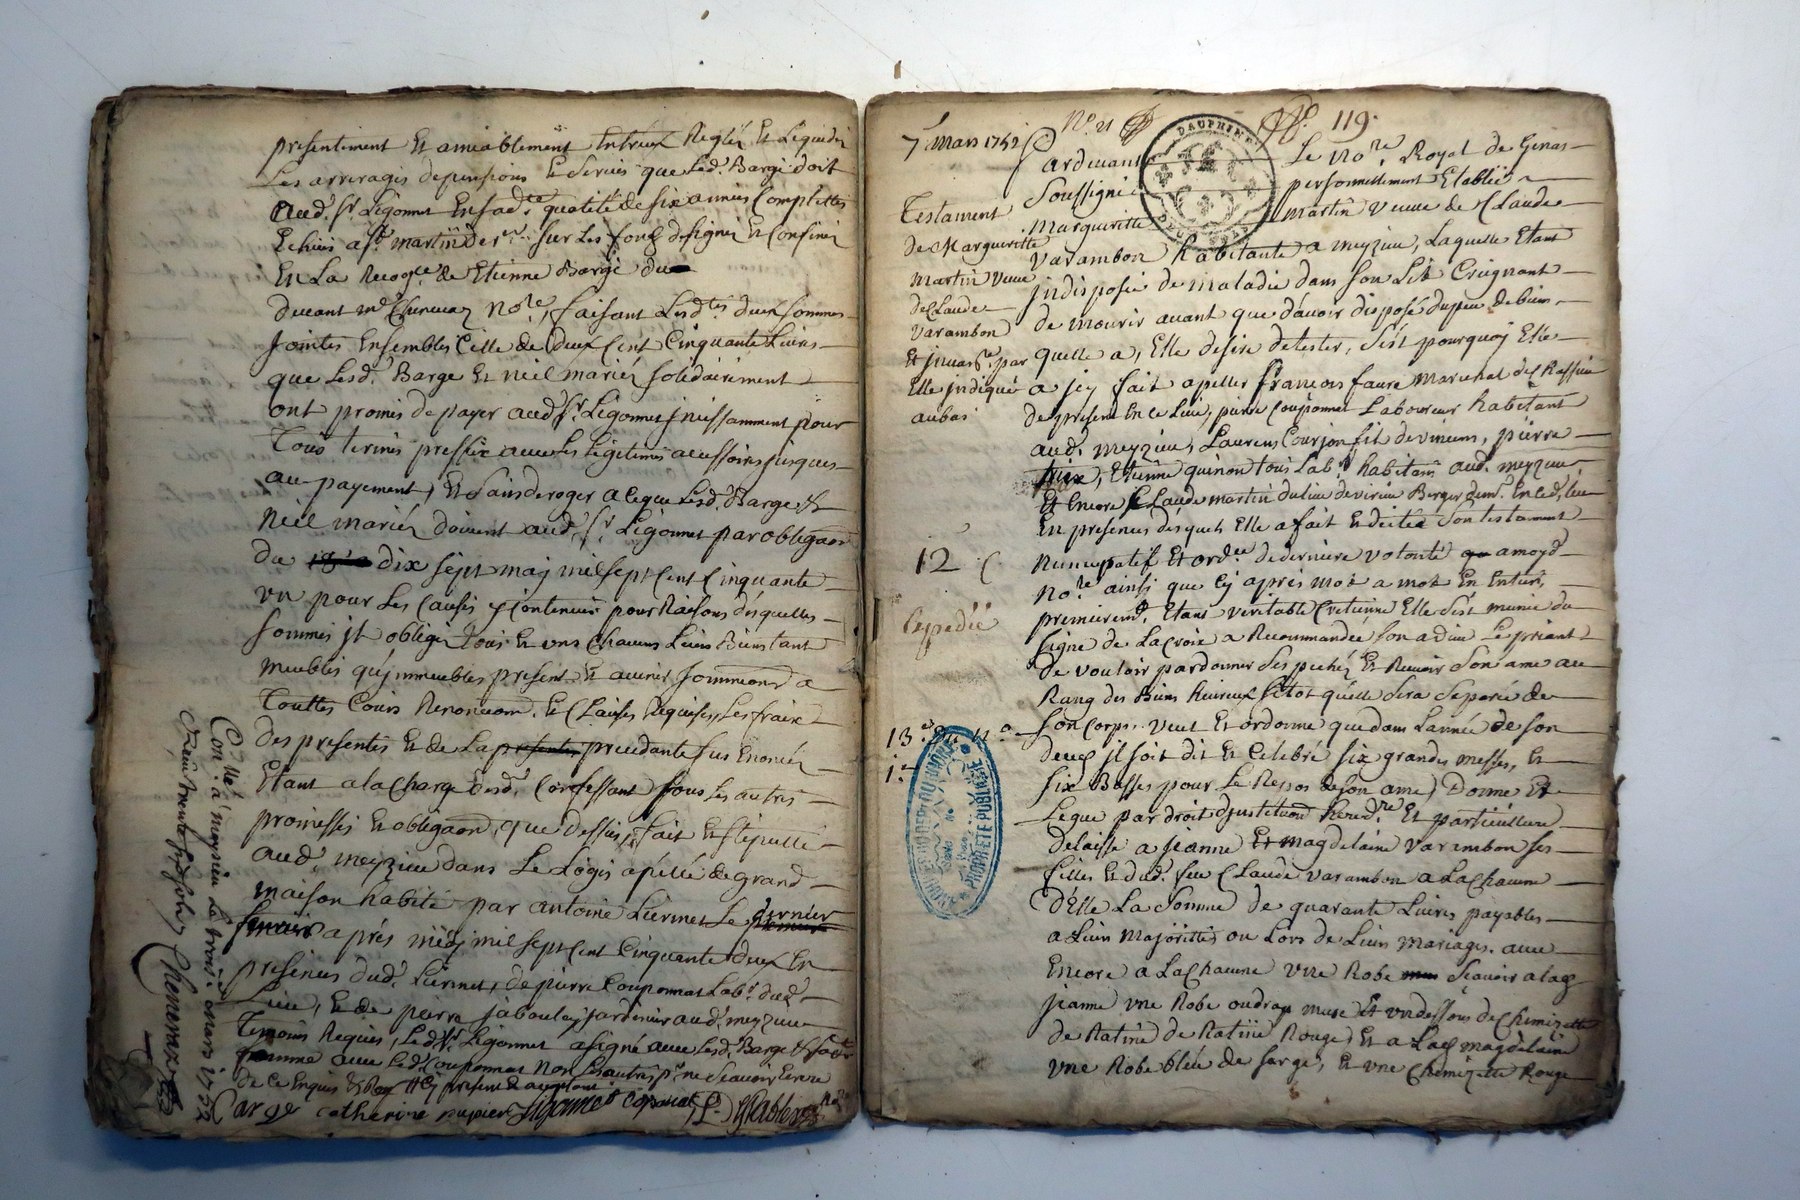 presentiment Et amiablement Entreux Reglés Et Liquidés
Les arreragis de pensions Et Servis que Led. Bargé doit
Aud. Sr. Ligonnet En sad. qualité de six années Complettes
Echües a St. martin der. sur Les fonds désignés Et Confinés
En La Recog.ce de Etienne Bargé du
devant me Chenevaz No.re, faisant Lesd.tes deux sommes
Jointes Ensembles Celle de deux Cent Cinquante Livres
que Lesd. Barge Et neil mariés solidairement
ont promis de payer aud. Sr. Ligonnet
Tous termes prefix avec Les Legitimes accessoires jusques
au payement, Et sans deroger a ce que Lesd. Barge &
Neil mariés doivent aud. Sr. Ligonnet par obligaon
du dix sept may mil sept Cent Cinquante
un pour Les Causes y Contenues pour Raisons desquelles
sommes
meubles qu'immeubles present Et avenir
Touttes Cours Renonciaon. Et Clauses Requises, Les fraix
des presentes Et de La presente precedante sus Enoncés
Etant a la Charge desd. Confessant sous Les autres
promesses Et obligaon, que dessus, fait Et stipullé
aud. meyzieu dans Le Logis apéllé de grand
maison habité par antoine Liermet Le dernier premier
fevrier aprés midy mil sept Cent Cinquante deux En
presences dud. Liermet, de pierre Couponnat Lab.r dud.
Lieu, Et de pierre jaboulay jardinier aud. meyzieu
Temoins Requis, Led. Sr. Ligonnet a signé avec Lesd. Barge &
femme avec Led. Couponnat non Les autres p.r ne scavoir Ecrire
de Ce Enquis & Req.
Barge Catherine papier Ligonnet Coponat
Con.llé a meyzieu Le trois. mars 1752
Chenevaz
7 mars 1752
No. 21
119.
DAUPHINE
Pardevant Le No.re Royal de Genas
Soussigné personnellement Etablie
Margueritte martin veuve de Claude
varambon habitante a meyzieu, Laquelle Etant
Testament
de Marguerite
Martin veuve
de Claude
varambon
Elle indiqué
au bas
indisposée de maladie dans son Lit Craignant
de mourir avant que d'avoir disposé du peu de biens
quelle a, Elle desire de tester, C'est pourquoy Elle
a icy fait apeller francois faure marechal de Chassieu
de present En ce Lieu, pierre Couponnat Laboureur habitant
aud. meyzieu, Laurens Courjon fils de vincens, pierre
Etienne quinon tous Lab.rs habitans aud. meyzieu
Et Encore Claude martin du Lieu de Berger dem.t En Led. Lieu
En presences desquels Elle a fait Et dicté Son testament
12
Nuncupatif Et ord.ce de derniere volonté a moyd.
No.re ainsi que Cy aprés mot a mot En Entier,
Expedié
premierem.t Etant veritable Cretienne Elle s'est munie du
signe de La Croix a Recommandée son a dieu Le priant
de vouloir pardonner ses pechés Et Recevoir son ame au
Rang des Bienheureux sitot quelle sera separée de
son Corps. Veut Et ordonne que dans L'année de son
deces il soit dit Et Celebré six grandes messes, Et
six Basses pour Le Repos de son ame; Donne Et
Legue par droit d'institution hered.re Et particulliere
delaisse a jeanne Et magdelaine varambon ses
filles Et dud. feu Claude varambon a La Chacune
d'Elle La somme de quarante Livres payables
a Leurs Majorittés ou Lors de Leurs mariages. avec
Encore a La Chacune une Robe scavoir a Lad.
jeanne une Robe Et un dessous de Chemizette
de Ratine de Ratine Rouge, Et a Lad. magdelaine
une Robe bléü de sarge, Et une Chemizette Rouge
PROPRIETE PUBLIQUE